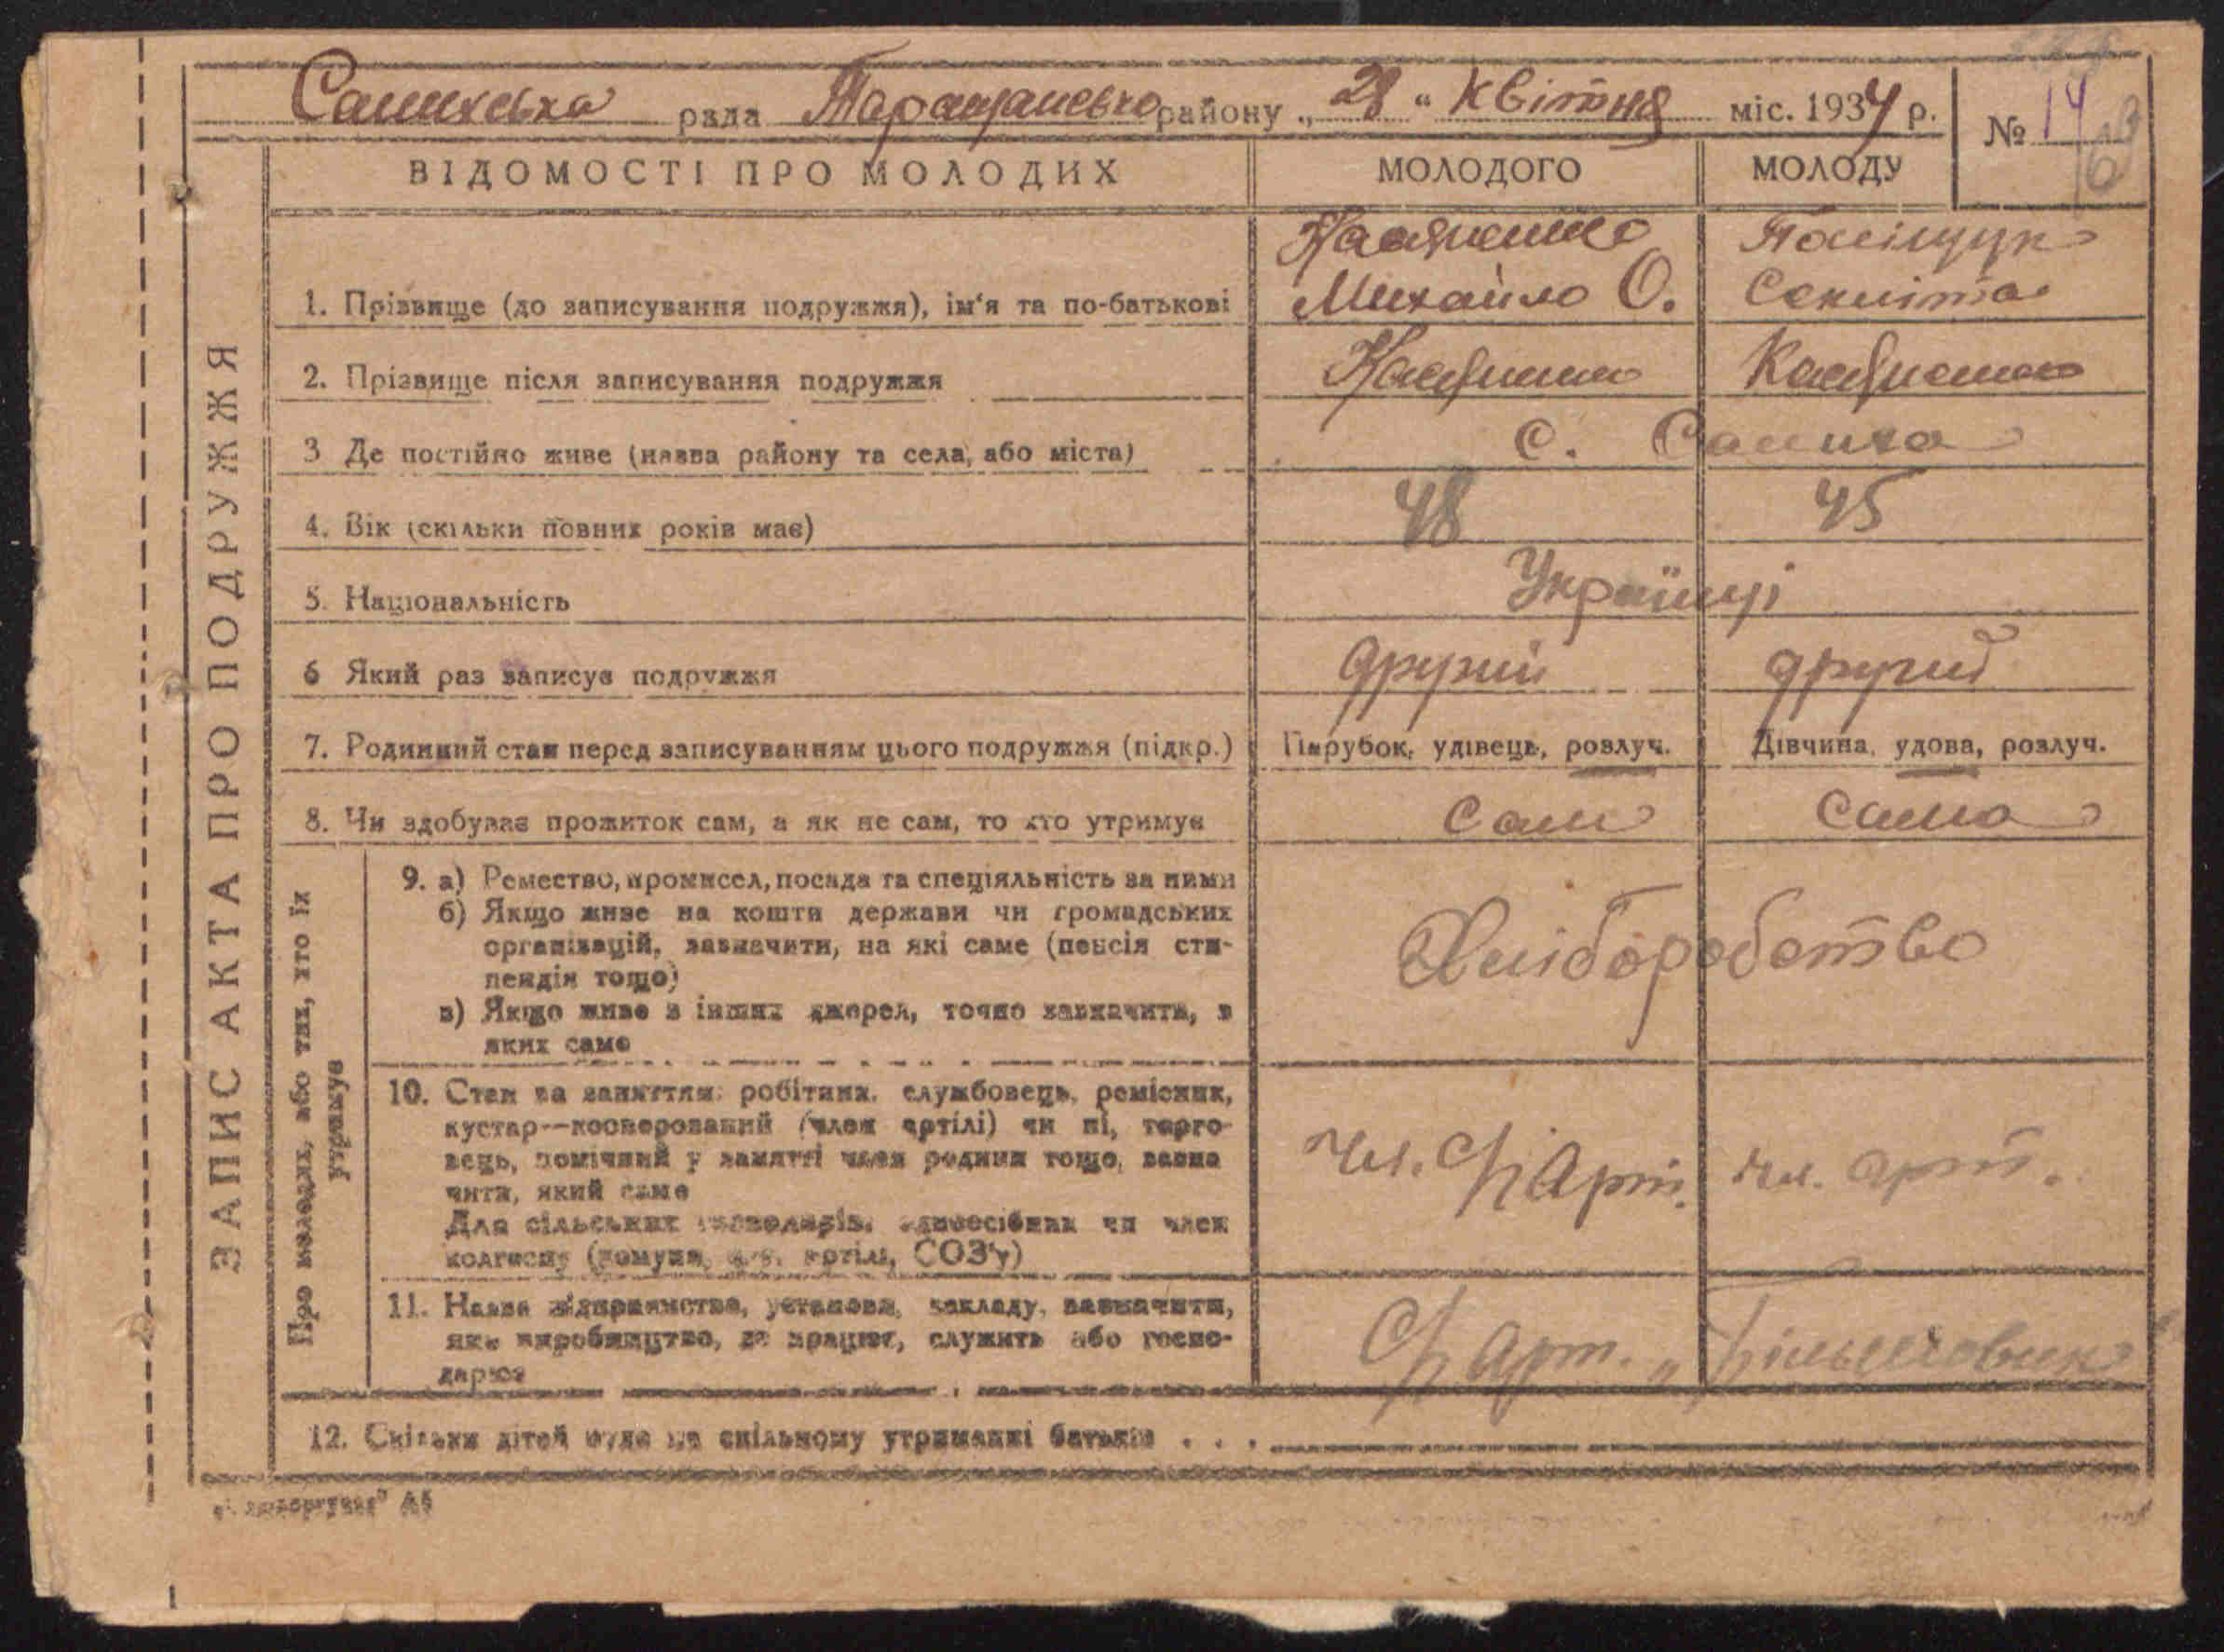 Салихська рада Таращансько району „28“ Квітня міс. 1934 р.
№ 14
ВІДОМОСТІ ПРО МОЛОДИХ МОЛОДОГО МОЛОДУ
ЗАПИС АКТА ПРО ПОДРУЖЖЯ
Касяненко Поліщук
1. Прізвище (до записування подружжя), ім'я та по-батькові Михайло О. Секліта
2. Прізвище після записування подружжя Касяненко Касяненко
3 Де постійно живе (назва району та села, або міста) С. Салиха
4. Вік (скільки повних років має) 48 45
5. Національність Українці
6 Який раз записує подружжя другий другий
7. Родинний стан перед записуванням цього подружжя (підкр.) Парубок, удівець, розлуч. Дівчина, удова, розлуч.
8. Чи здобуває прожиток сам, а як не сам, то хто утримує Сам Сама
Про молодих, або тих, хто їх
утримує
9. а) Ремество, промисел, посада та спеціяльність за ними
б) Якщо живе на кошти держави чи громадських
організацій, зазначити, на які саме (пенсія сти-
пендія тощо)
в) Якщо живе з інших джерел, точно зазначити, з
яких саме
Хліборобство
10. Стан за заняттям: робітник, службовець, ремісник,
кустар--кооперований (член артілі) чи ні, торго-
вець, помічний у занятті член родини тощо, зазна
чити, який саме
Для сільських господарів, одноосібник чи член
колгоспу (комуна, с.-г. артіль, СОЗ'у)
чл. С/г Арт. чл. арт.
11. Назва підприємства, установи, закладу, зазначити,
яке виробництво, де працює, служить або госпо-
дарює
С/г Арт. „Більшовик“
12. Скільки дітей буде на спільному утриманні батьків . . .